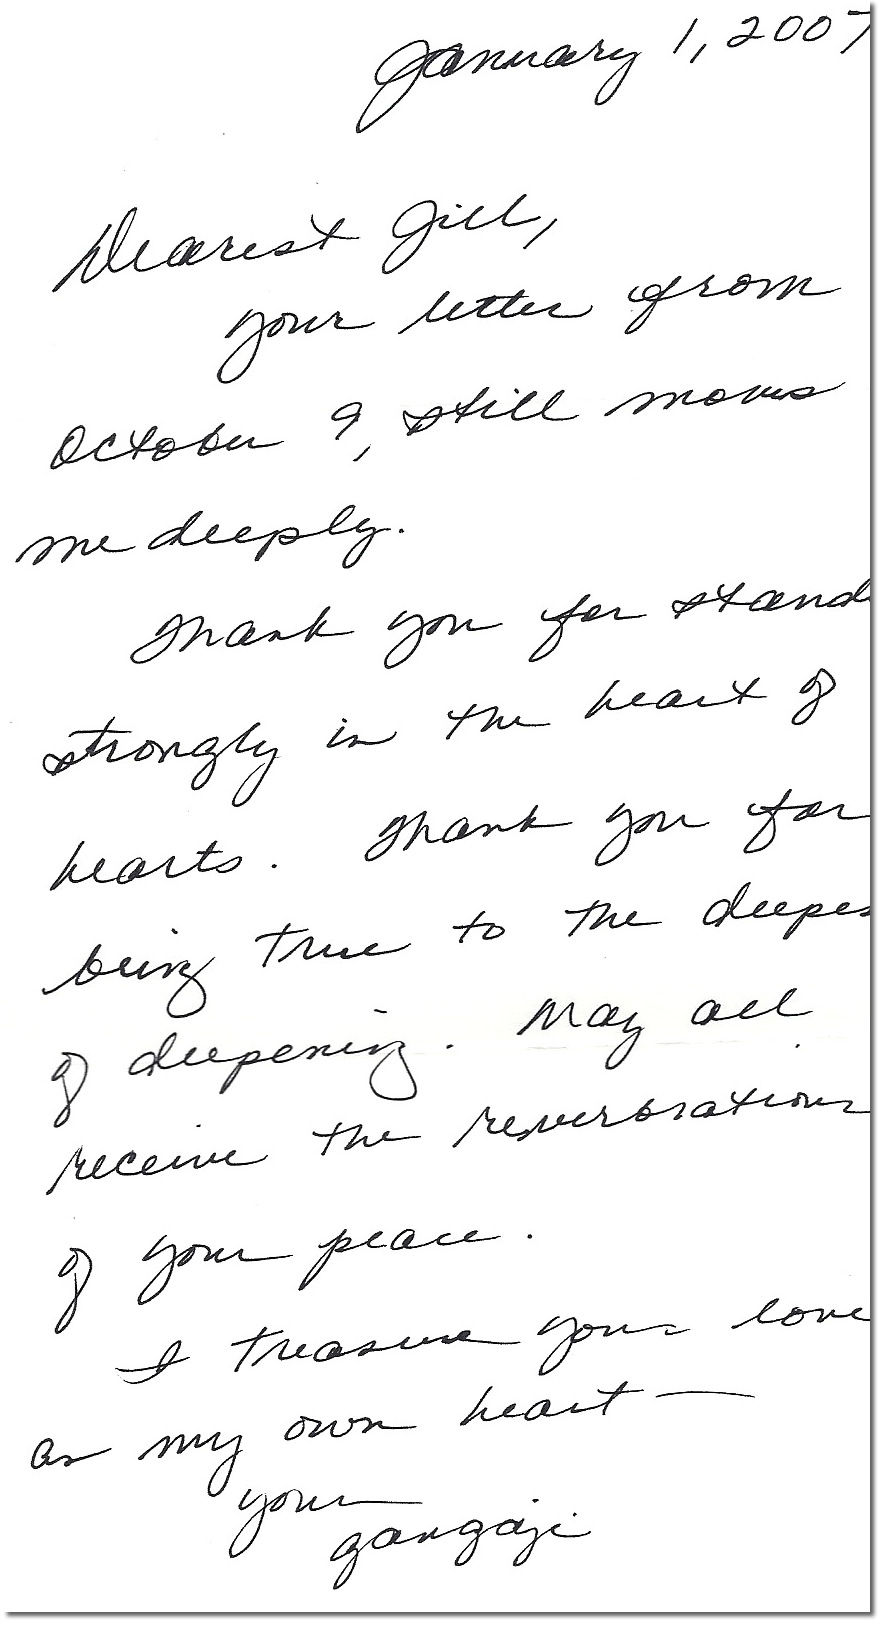 January 1, 2007
Dearest Jill,
your letter from
October 9, still moves
me deeply.
Thank you for stand
strongly in the heart of
hearts. Thank you for
being true to the deepes
of deepening. May all
receive the reverbrations
of your peace.
I treasure your love
as my own heart —
your
gangaji